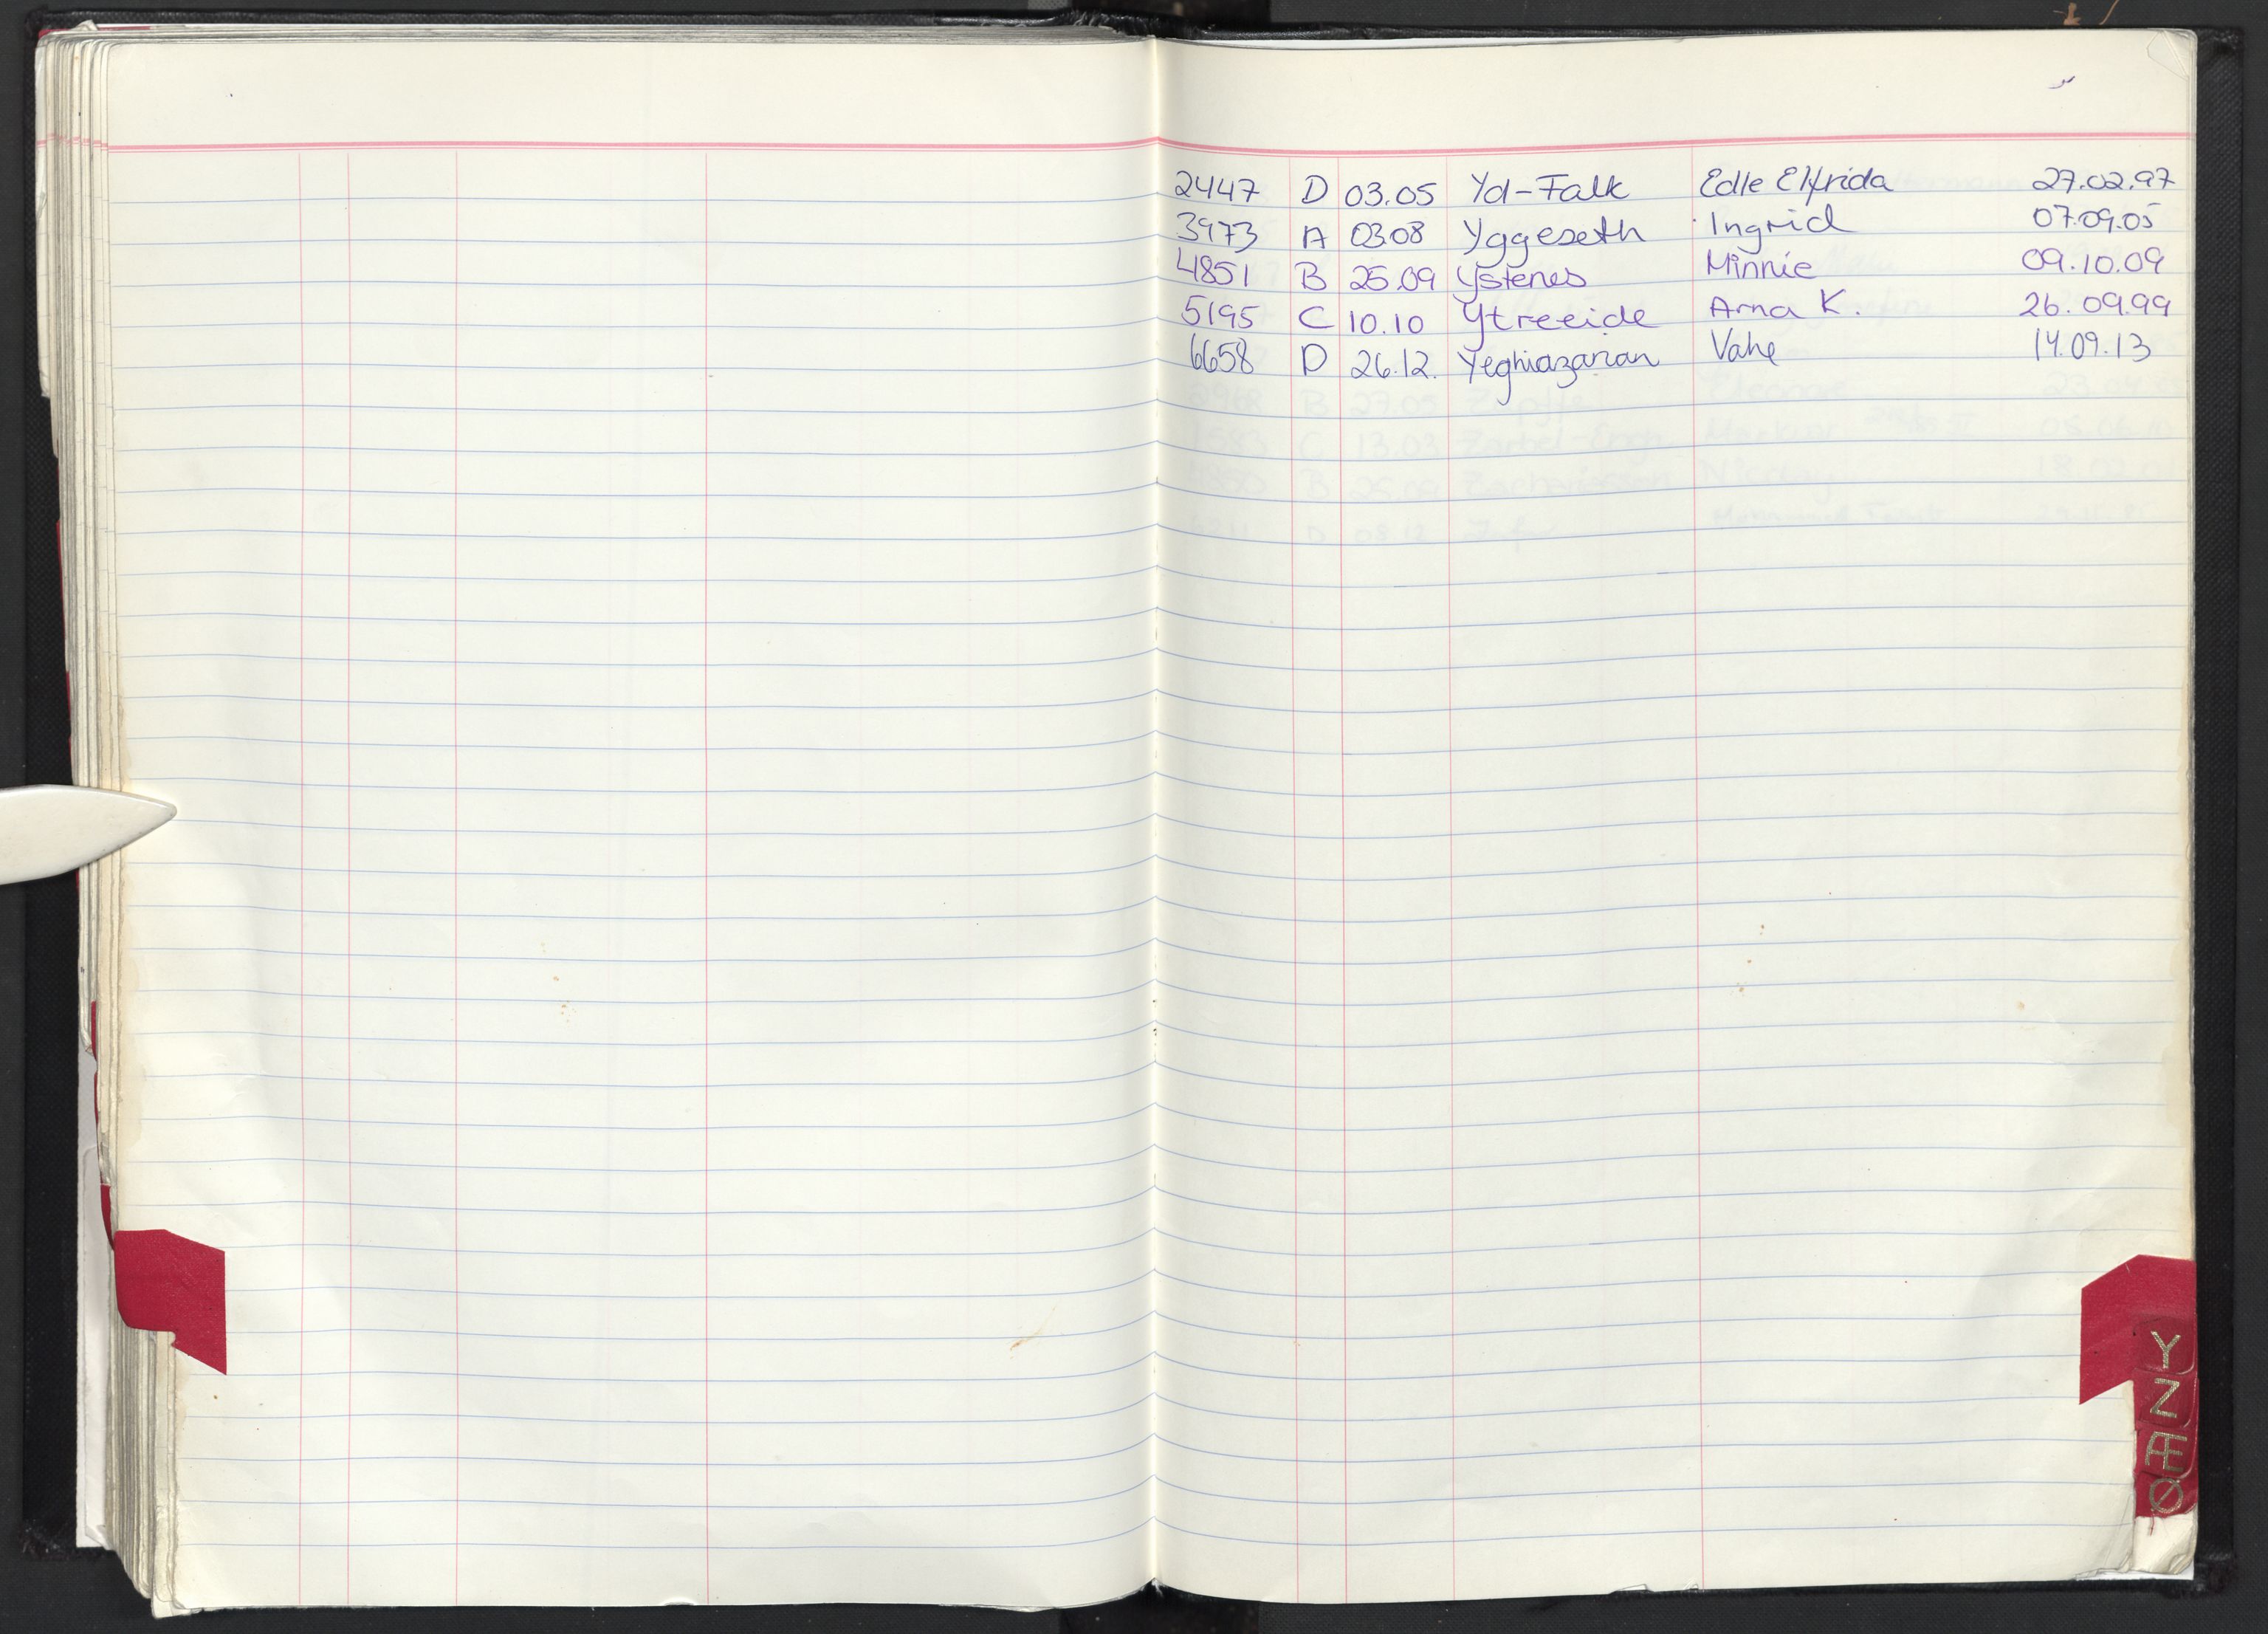 2447 D 03.05 Yd-Falk Edle Elfrida 27.02.97
3973 A 03.08 Yggeseth Ingrid 07.09.05
4851 B 25.09 Ystenes Minnie 09.10.09
5195 C 10.10 Ytreeide Arna K. 26.09.99
6658 D 26.12. Yeghiazarian Vahe 14.09.13
Y
Z
Æ
Ø